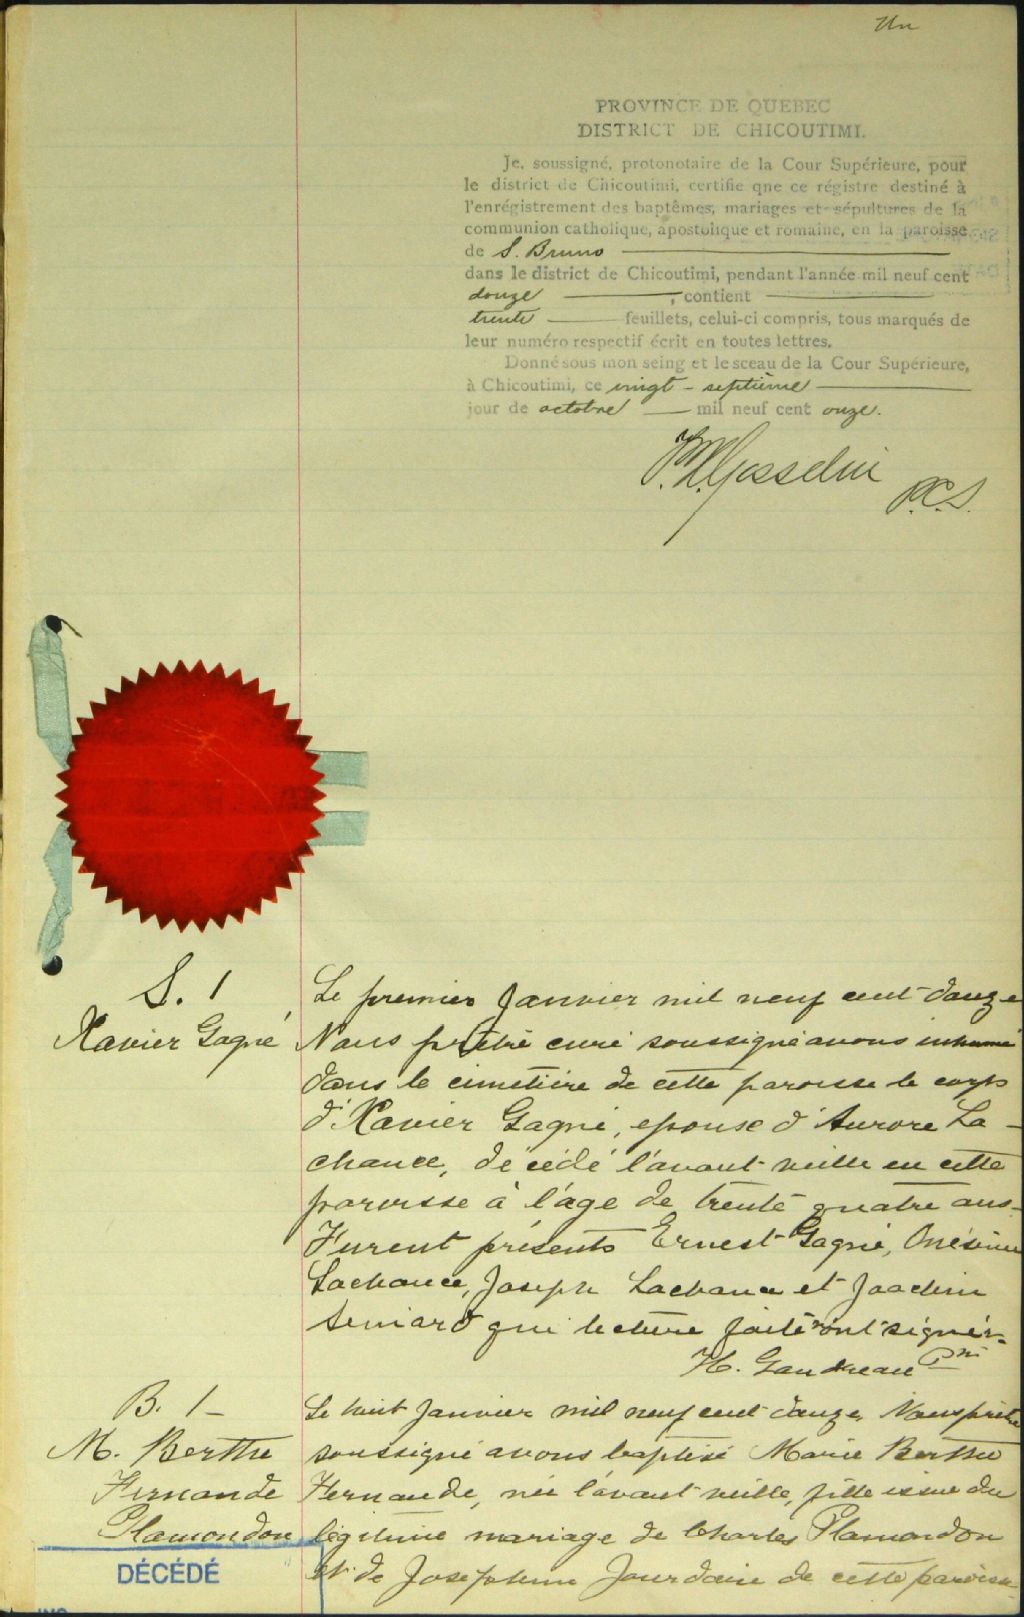 Un
PROVINCE DE QUEBEC
DISTRICT DE CHICOUTIMI.
Je, soussigné, protonotaire de la Cour Supérieure, pour
le district de Chicoutimi, certifie qne ce régistre destiné à
l'enrégistrement des baptêmes, mariages et sépultures de la
communion catholique, apostolique et romaine, en la paroisse
de S. Bruno
dans le district de Chicoutimi, pendant l'année mil neuf cent
douze, contient
trente feuillets, celui-ci compris, tous marqués de
leur numéro respectif écrit en toutes lettres.
Donné sous mon seing et le sceau de la Cour Supérieure,
à Chicoutimi, ce vingt-septième
jour de octobre mil neuf cent onze.
Gosselin
P.C.S.
S. 1
Xavier Gagné
Le premier Janvier mil neuf cent douze
Nous prêtre curé soussigné avons inhumé
dans le cimetière de cette paroisse le corps
d'Xavier Gagné, epoux d'Aurore La-
chance, décédé l'avant-veille en cette
paroisse à l'âge de trente quatre ans.
Furent présents Ernest Gagné, Onésime
Lachance, Joseph Lachance et Joachim
Simard qui lecture faite ont signé.
H. Gaudreau Ptre
B. 1-
M. Berthe
Fernande
Plamondon
Le huit Janvier mil neuf cent douze, Nous prêtre
soussigné avons baptisé Marie Berthe
Fernande, née l'avant veille, fille issue du
légitime mariage de Charles Plamondon
et de Josephine Jourdain de cette paroisse
DÉCÉDÉ